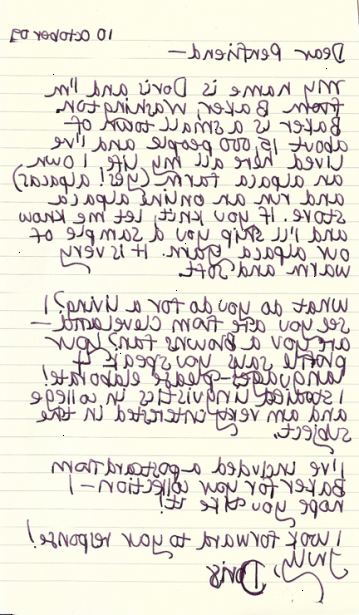 10 October 09
Dear Penfriend—
My name is Doris and I'm
from Baker, Washington.
Baker is a small town of
about 15,000 people and I've
lived here all my life. I own
an alpaca farm (yes! alpacas)
and run an online alpaca
store. If you knit, let me know
and I'll ship you a sample of
our alpaca yarn. It is very
warm and soft.
What do you do for a living? I
see you are from Cleveland—
are you a Browns fan? Your
profile says you speak 4
languages—please elaborate!
I studied linguistics in college
and am very interested in the
subject.
I've included a postcard from
Baker for your collection—I
hope you like it!
I look forward to your response!
Truly,
Doris